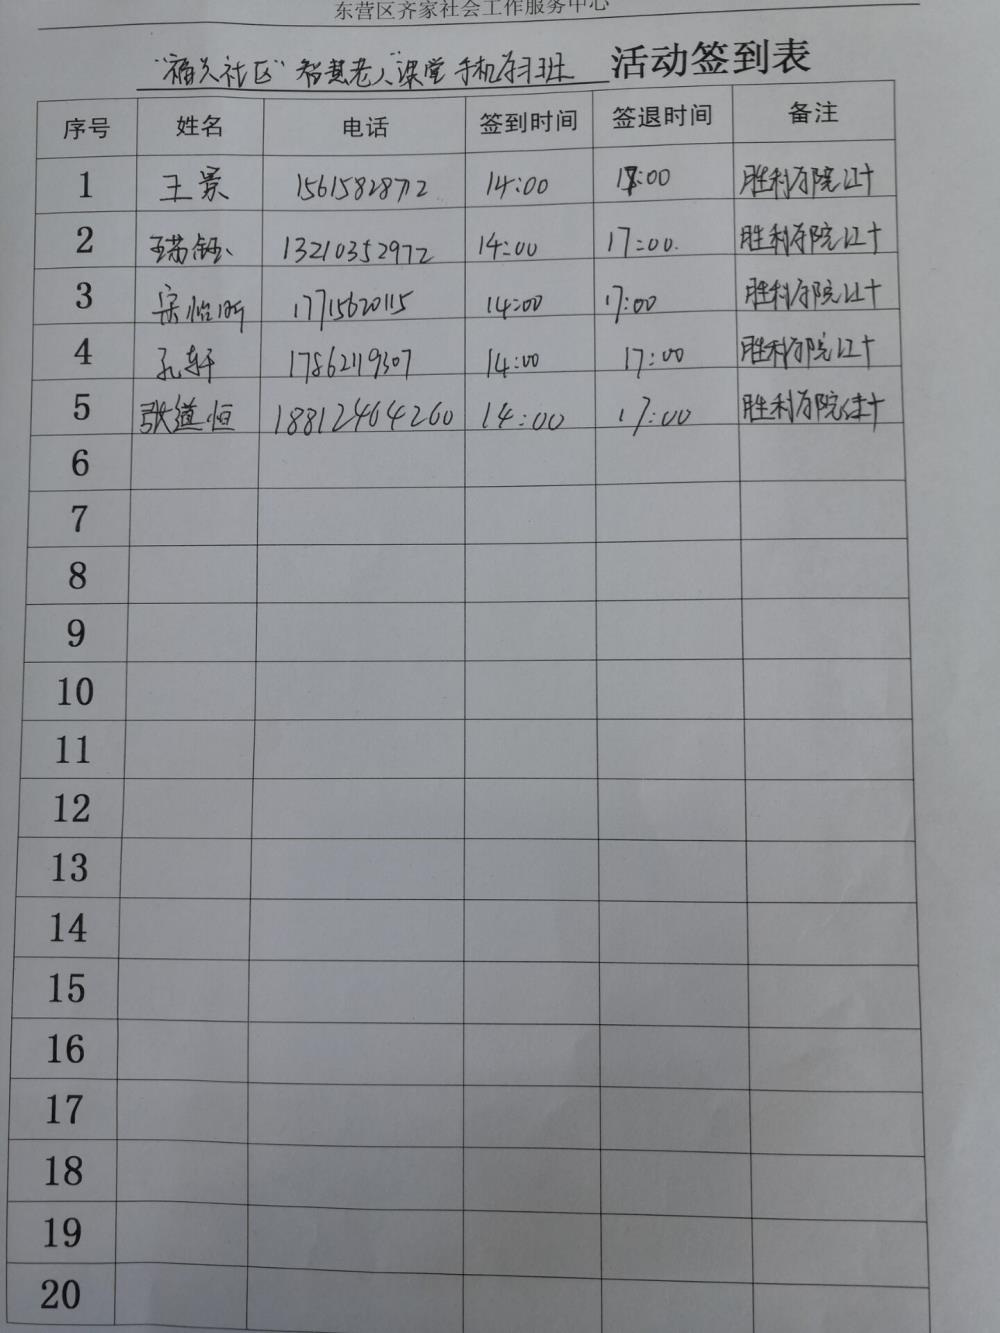 东营区齐家社会工作服务中心
"福久社区"智慧老人"课堂 手机学习班 活动签到表
序号 姓名 电话 签到时间 签退时间 备注
1 王景 15615828772 14:00 17:00 胜利学院
2 13210352972 14:00 17:00. 胜利学院
3 宋怡昕 17715620115 14:00 17:00 胜利学院
4 孔轩 17862119307 14:00 17:00 胜利学院
5 张道恒 18812464260 14:00 17:00 胜利学院
6
7
8
9
10
11
12
13
14
15
16
17
18
19
20